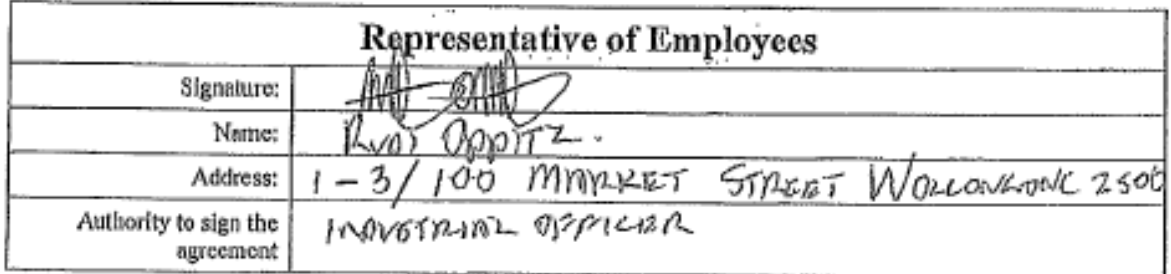 Representative of Employees
Signature:
Name: Rudi Oppitz.
Address: 1-3/100 MARKET STREET WOLLONGONG 2500
Authority to sign the agreement INDUSTRIAL OFFICER